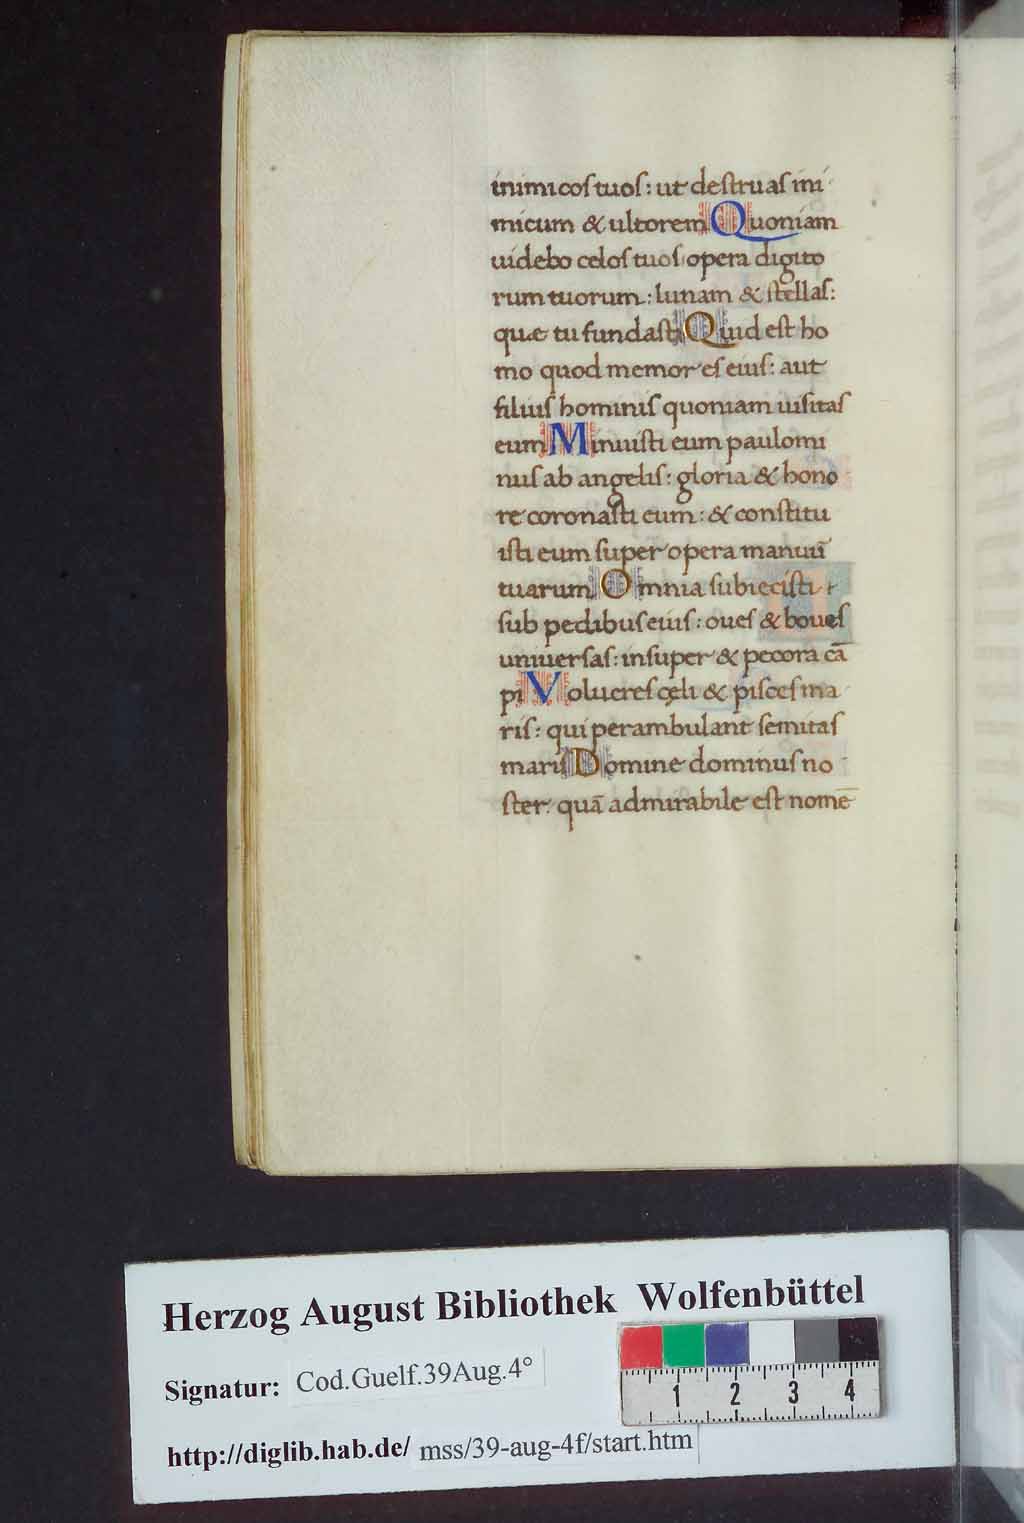 inimicos tuos: ut destruas ini
micum & ultorem Quoniam
uidebo celos tuos opera digito
rum tuorum: lunam & stellas:
quæ tu fundasti Quid est ho
mo quod memor es eius: aut
filius hominis quoniam uisitas
eum Minuisti eum paulomi
nus ab angelis: gloria & hono
re coronasti eum: & constitu
isti eum super opera manuū
tuarum Omnia subiecisti
sub pedibus eius: oues & boues
uniuersas: insuper & pecora cā
pi Volucres cęli & pisces ma
ris: qui perambulant semitas
maris Domine dominus no
ster. quā admirabile est nomē
Herzog August Bibliothek Wolfenbüttel
Signatur: Cod.Guelf.39Aug.4°
1 2 3 4
http://diglib.hab.de/ mss/39-aug-4f/start.htm